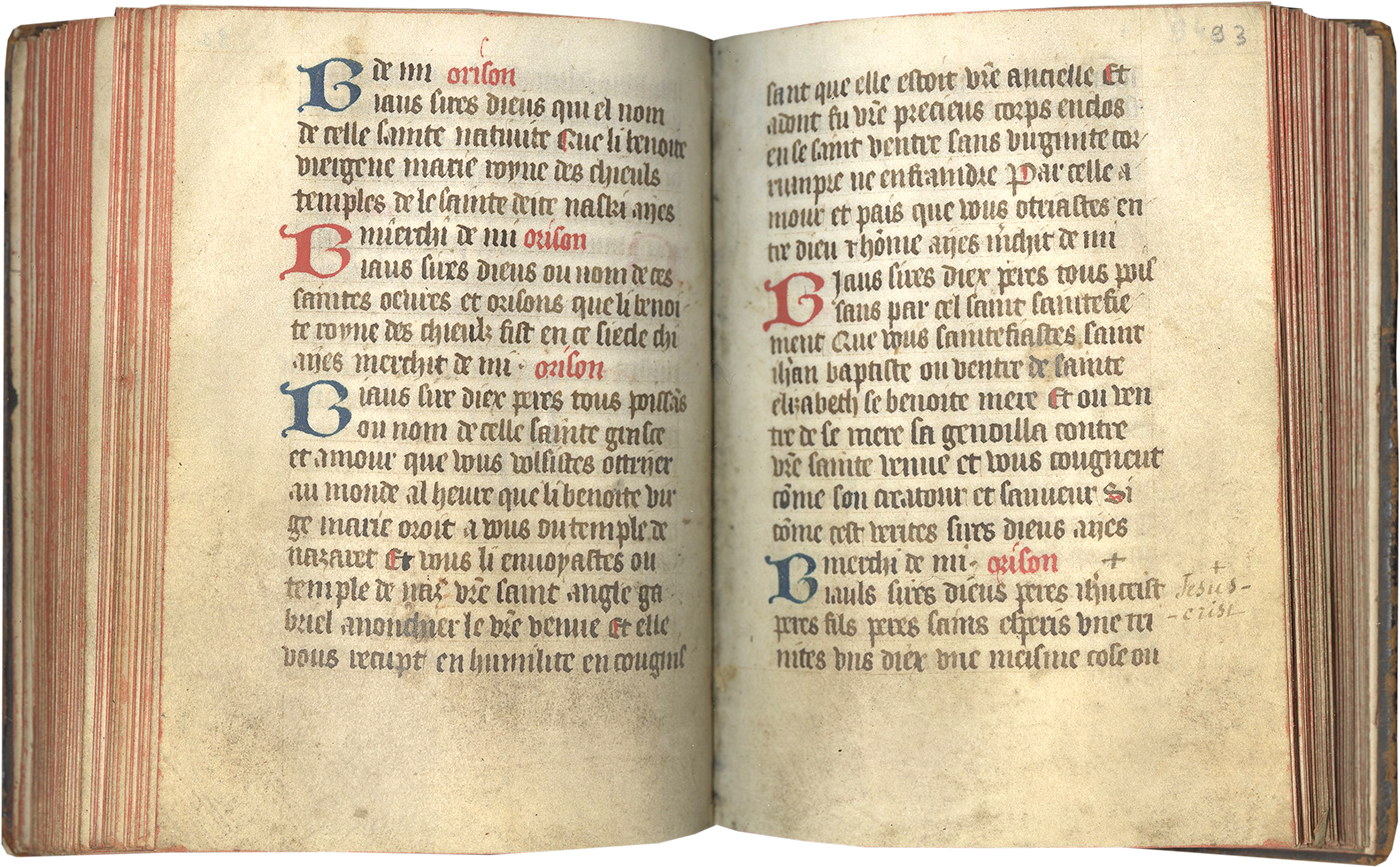 de mi orison
Biaus sires dieus qui el nom
de celle sainte natiuite Que li benoite
viergene marie royne des chieuls
temples de le sainte deite naski aijes
mierchi de mi orison
Biaus sires dieus ou nom de ces
saintes oeures et orisons que li benoi-
te royne des chieulz fist en ce siecle chi
aijes merchit de mi · orison
Biaus sire diex peres tous poissās
ou nom de celle sainte grasce
et amour que vous volsistes ottrijer
au monde al heure que li benoite vir
ge marie oroit a vous ou temple de
nazaret Et vous li enuoyastes ou
temple de naz̄ vr̄e saint angle ga
briel anonchier le vr̄e venue Et elle
vous recupt en humilite en cougnis
93
sant que elle estoit vr̄e ancielle Et
adont fu vr̄e precieus corps enclos
en se saint ventre sans virginite cor
rumpre ne enfraindre Par celle a
mour et pais que vous otriastes en
tre dieu ⁊ hōme aijes m̄chit de mi
Biaus sires diex peres tous pois
sans par cel saint saintefie
ment Que vous saintefiastes saint
ih̄an baptiste ou ventre de sainte
elizabeth se benoite mere Et ou ven
tre de se mere sa genoilla contre
vr̄e sainte venue et vous cougneut
cōme son creatour et sauueur Si
cōme cest verites sires dieus aijes
merchi de mi · orison +
Biauls sires dieus peres ih̄ucrist
+ Jesus-
-crist
peres fils peres sains esperis vne tri
nites vns diex vne meisme cose ou